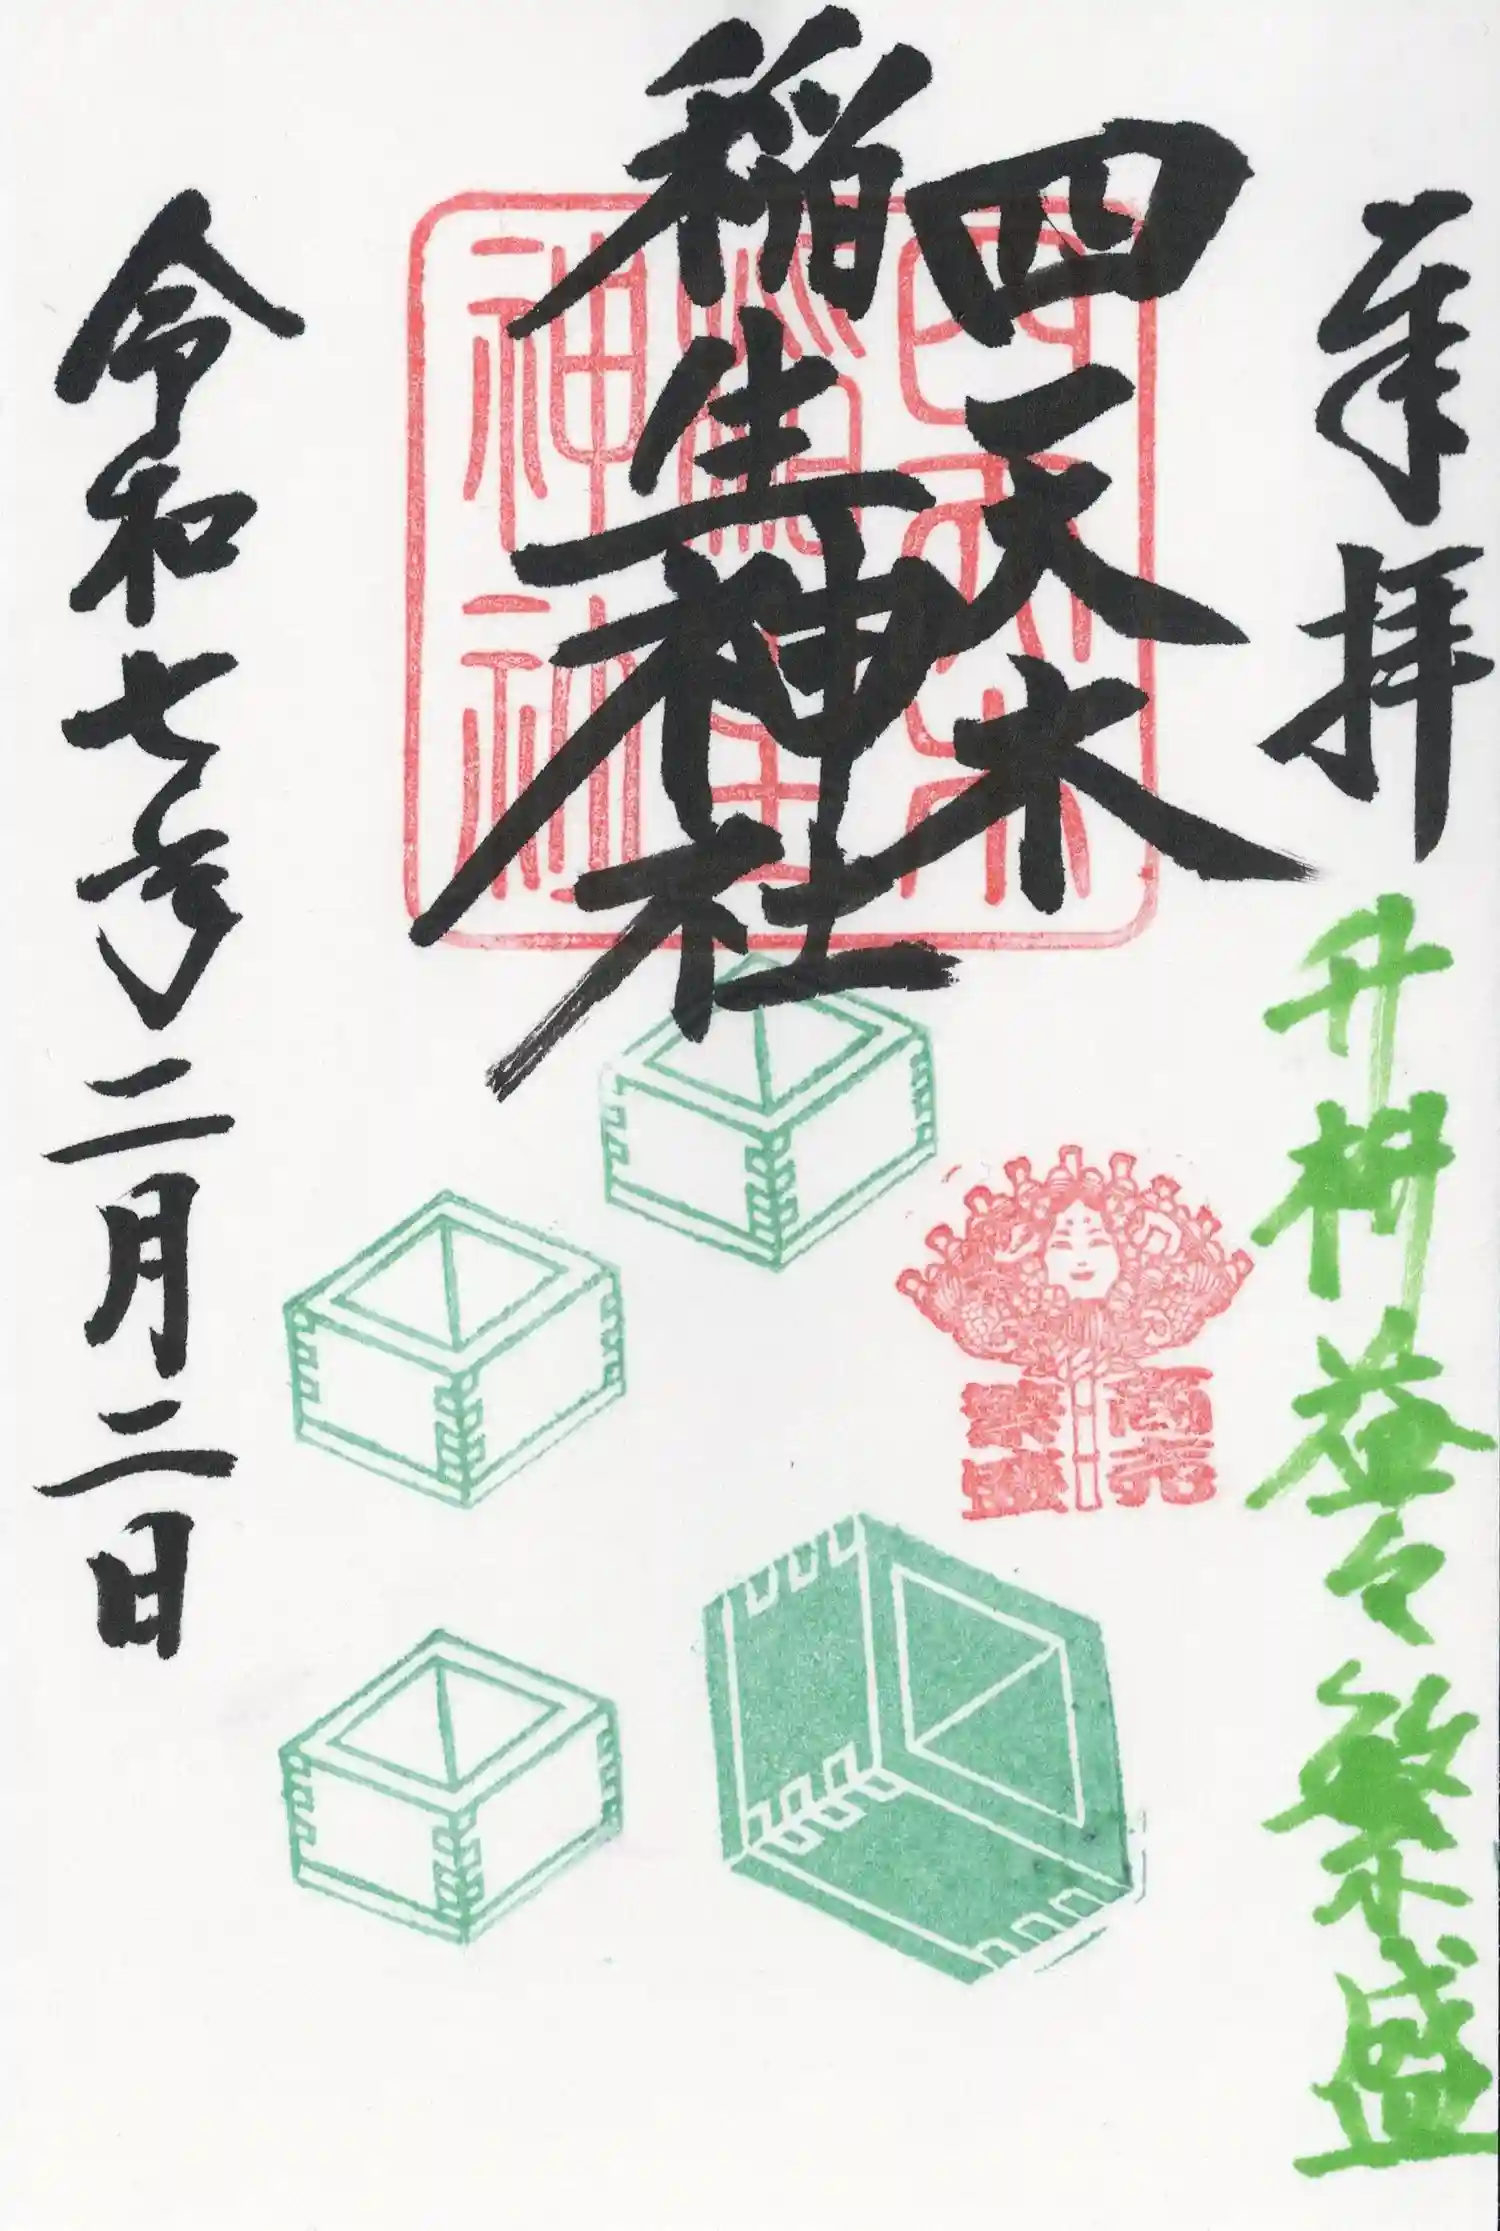 奉拝
升枡益々繁盛
四天木
稲生神社
四天木
稲生
神社
商売
繁盛
令和七年二月二日